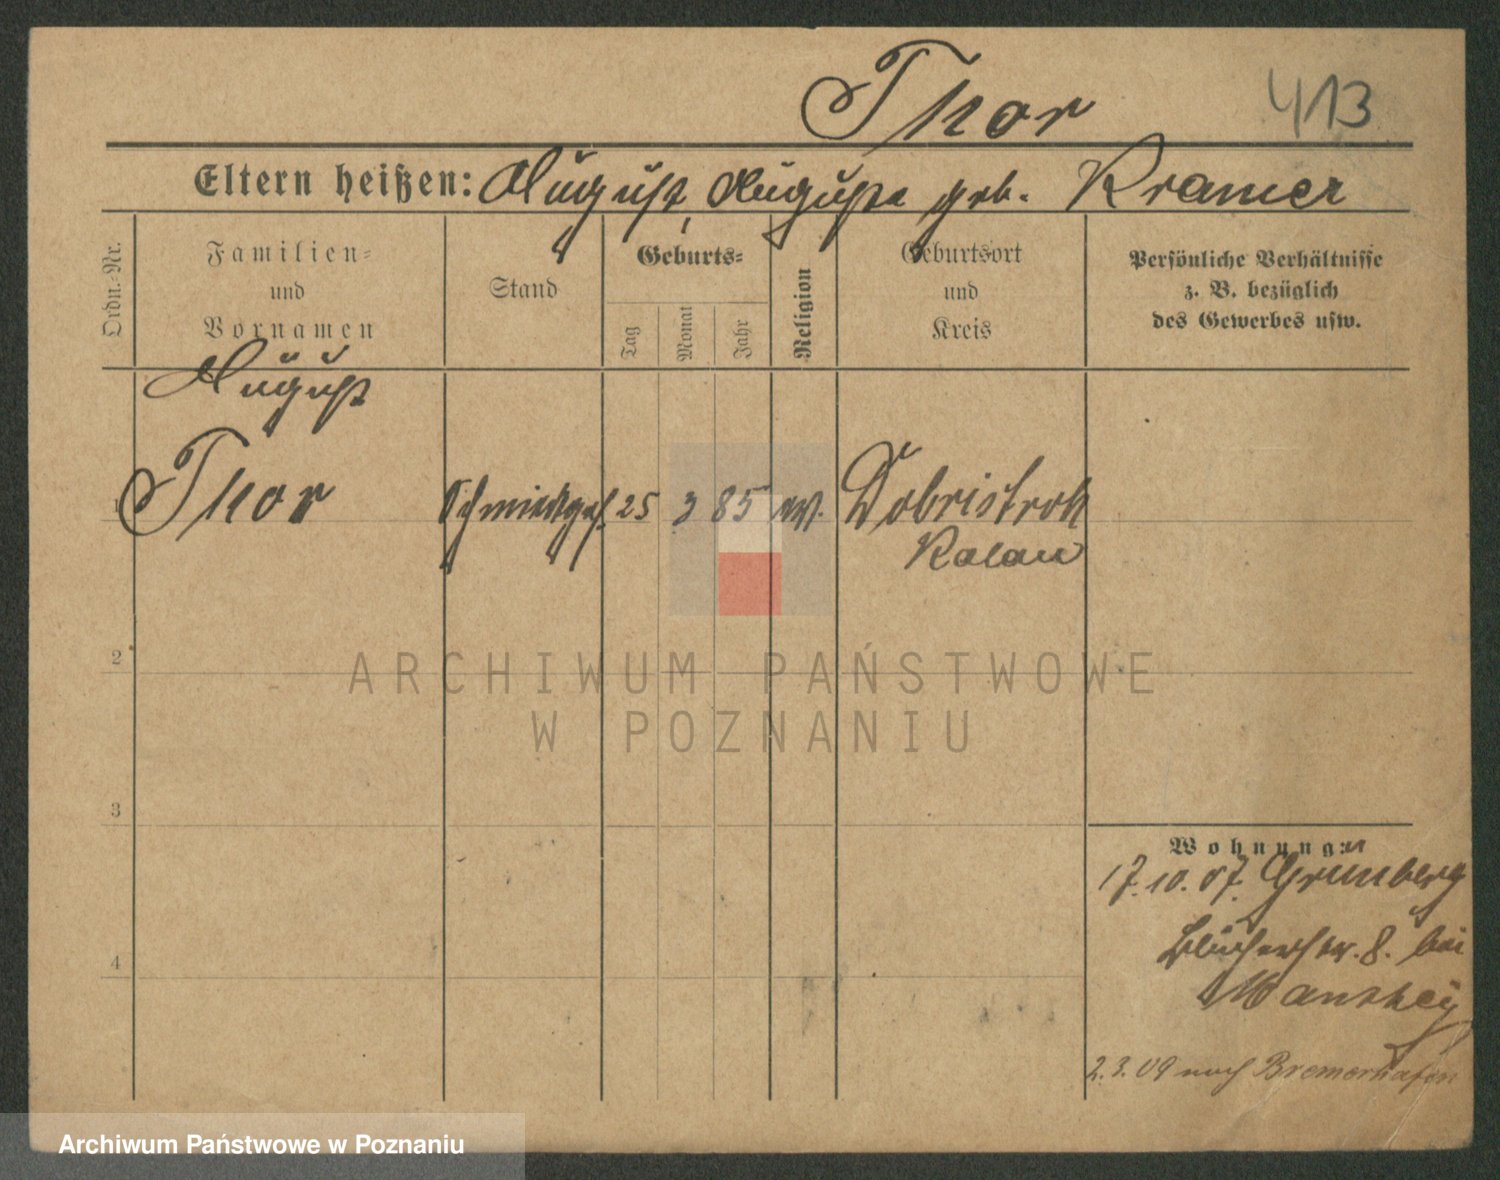 Thor 413
Eltern heißen: August, Auguste geb. Kramer
Ordn.-Nr.
Familien-
und
Vornamen
Stand
Geburts-
Tag
Monat
Jahr
Religion
Geburtsort
und
Kreis
Persönliche Verhältnisse
z. B. bezüglich
des Gewerbes usw.
August
1 Thor Schmiedges. 25 3 85 ev. Dobristroh
Kalau
2
ARCHIWUM PAŃSTWOWE
W POZNANIU
3
Wohnung:
17.10.07. Grünberg
Blücherstr. 8. bei
2.3.09 nach Bremerhafen
4
Archiwum Państwowe w Poznaniu